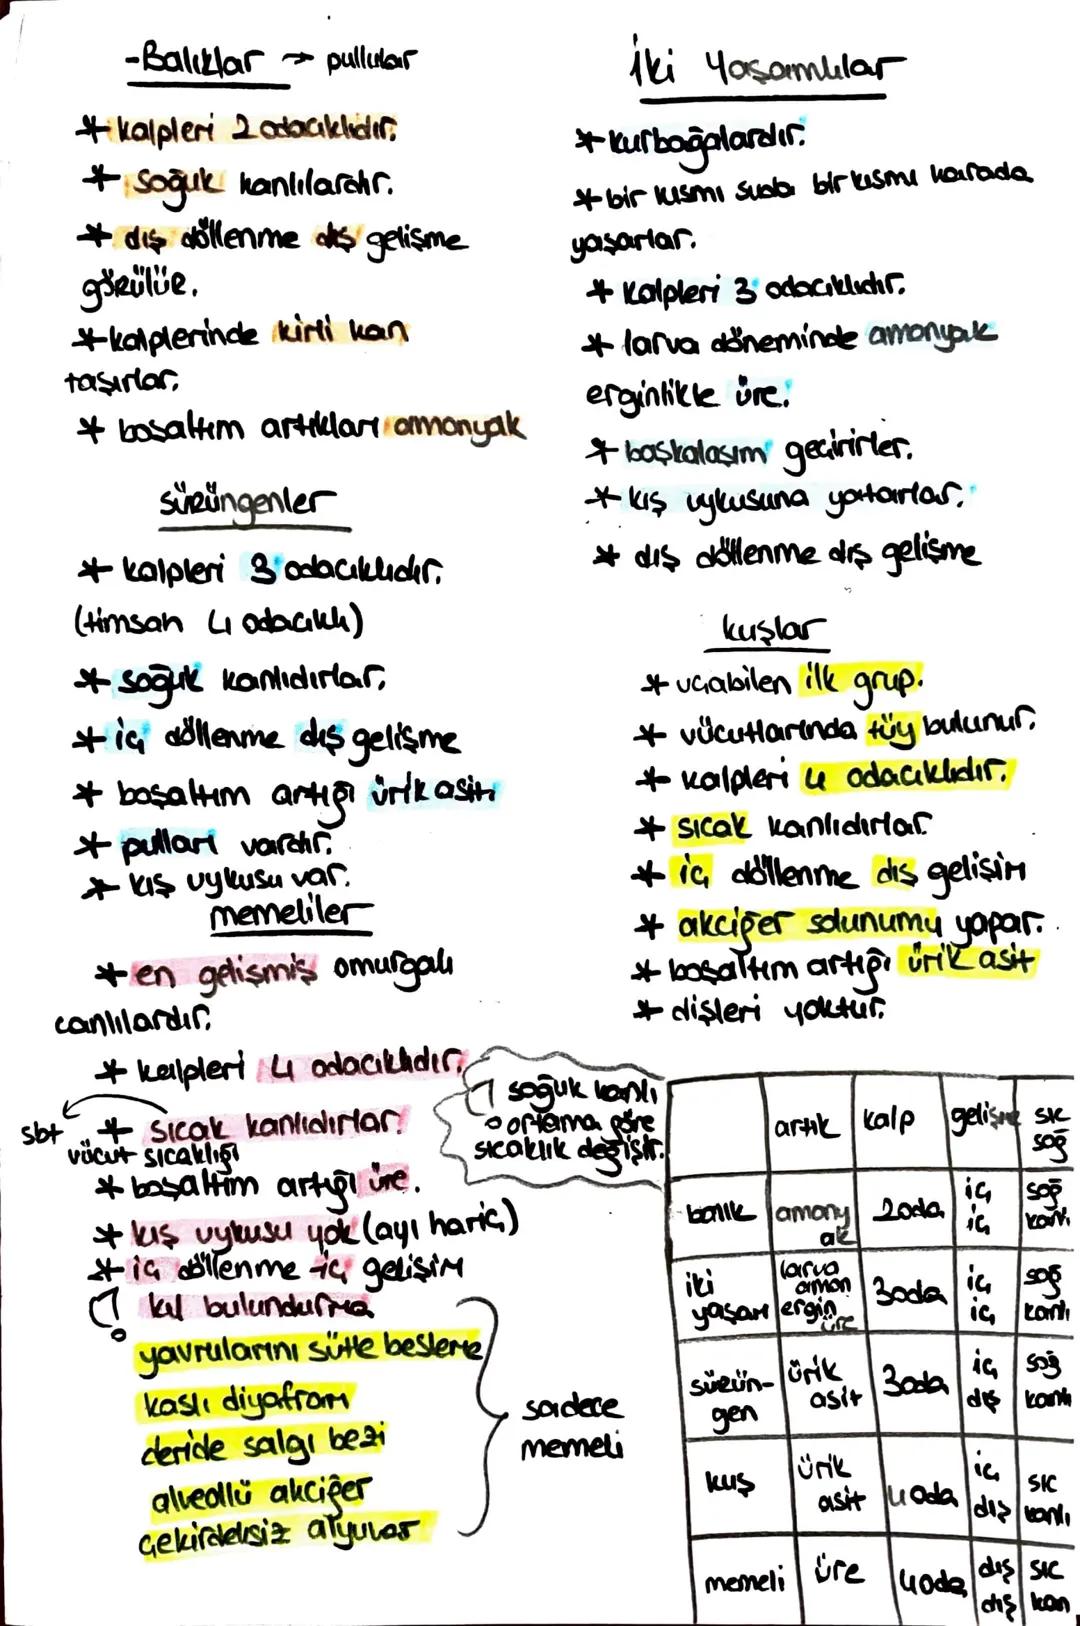 -Balıklar → pullular
* kalpleri 2 odacıklıdır.
* soğuk kanlılardır.
* dış döllenme dış gelişme
görülür.
* kalplerinde kirli kan
taşırlar.
* boşaltım artıkları amonyak
sürüngenler
* kalpleri 3 odacıklıdır.
(timsah 4 odacıklı)
* soğuk kanlıdırlar.
* iç döllenme dış gelişme
* boşaltım artığı ürik asit
* pulları vardır.
* kış uykusu var.
memeliler
* en gelişmiş omurgalı
canlılardır.
* kalpleri 4 odacıklıdır.
sbt
vücut sıcaklığı
* sıcak kanlıdırlar.
* boşaltım artığı üre.
* kış uykusu yok (ayı hariç)
* iç döllenme iç gelişim
kıl bulundurma
yavrularını sütle besleme
kaslı diyafram
deride salgı bezi
alveollü akciğer
çekirdeksiz alyuvar
sadece
memeli
İki Yaşamlılar
* kurbağalardır.
* bir kısmı suda bir kısmı karada
yaşarlar.
* kalpleri 3 odacıklıdır.
* larva döneminde amonyak
erginlikte üre.
* başkalaşım geçirirler.
* kış uykusuna yatarlar.
* dış döllenme dış gelişme
kuşlar
* uçabilen ilk grup.
* vücutlarında tüy bulunur.
* kalpleri 4 odacıklıdır.
* sıcak kanlıdırlar.
* iç döllenme dış gelişim
* akciğer solunumu yapar.
* boşaltım artığı ürik asit
* dişleri yoktur.
soğuk kanlı
ortama göre
sıcaklık değişir.
artık kalp gelişme sıc soğ
balık amonyak 2oda iç iç soğ kanlı
iki yaşam larva amon ergin üre 3oda iç iç soğ kanlı
sürün-gen ürik asit 3oda iç dış soğ kanlı
kuş ürik asit 4oda iç dış sıc kanlı
memeli üre 4oda dış dış sıc kan